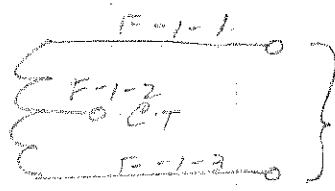 F-1-1
F-1-2
C.T
F-1-3